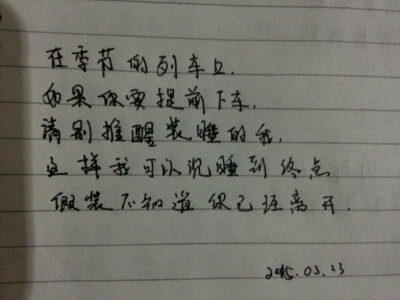 在季节的列车上.
如果你要提前下车.
请别推醒装睡的我.
这样我可以沉睡到终点
假装不知道你已经离开.
2015.03.23